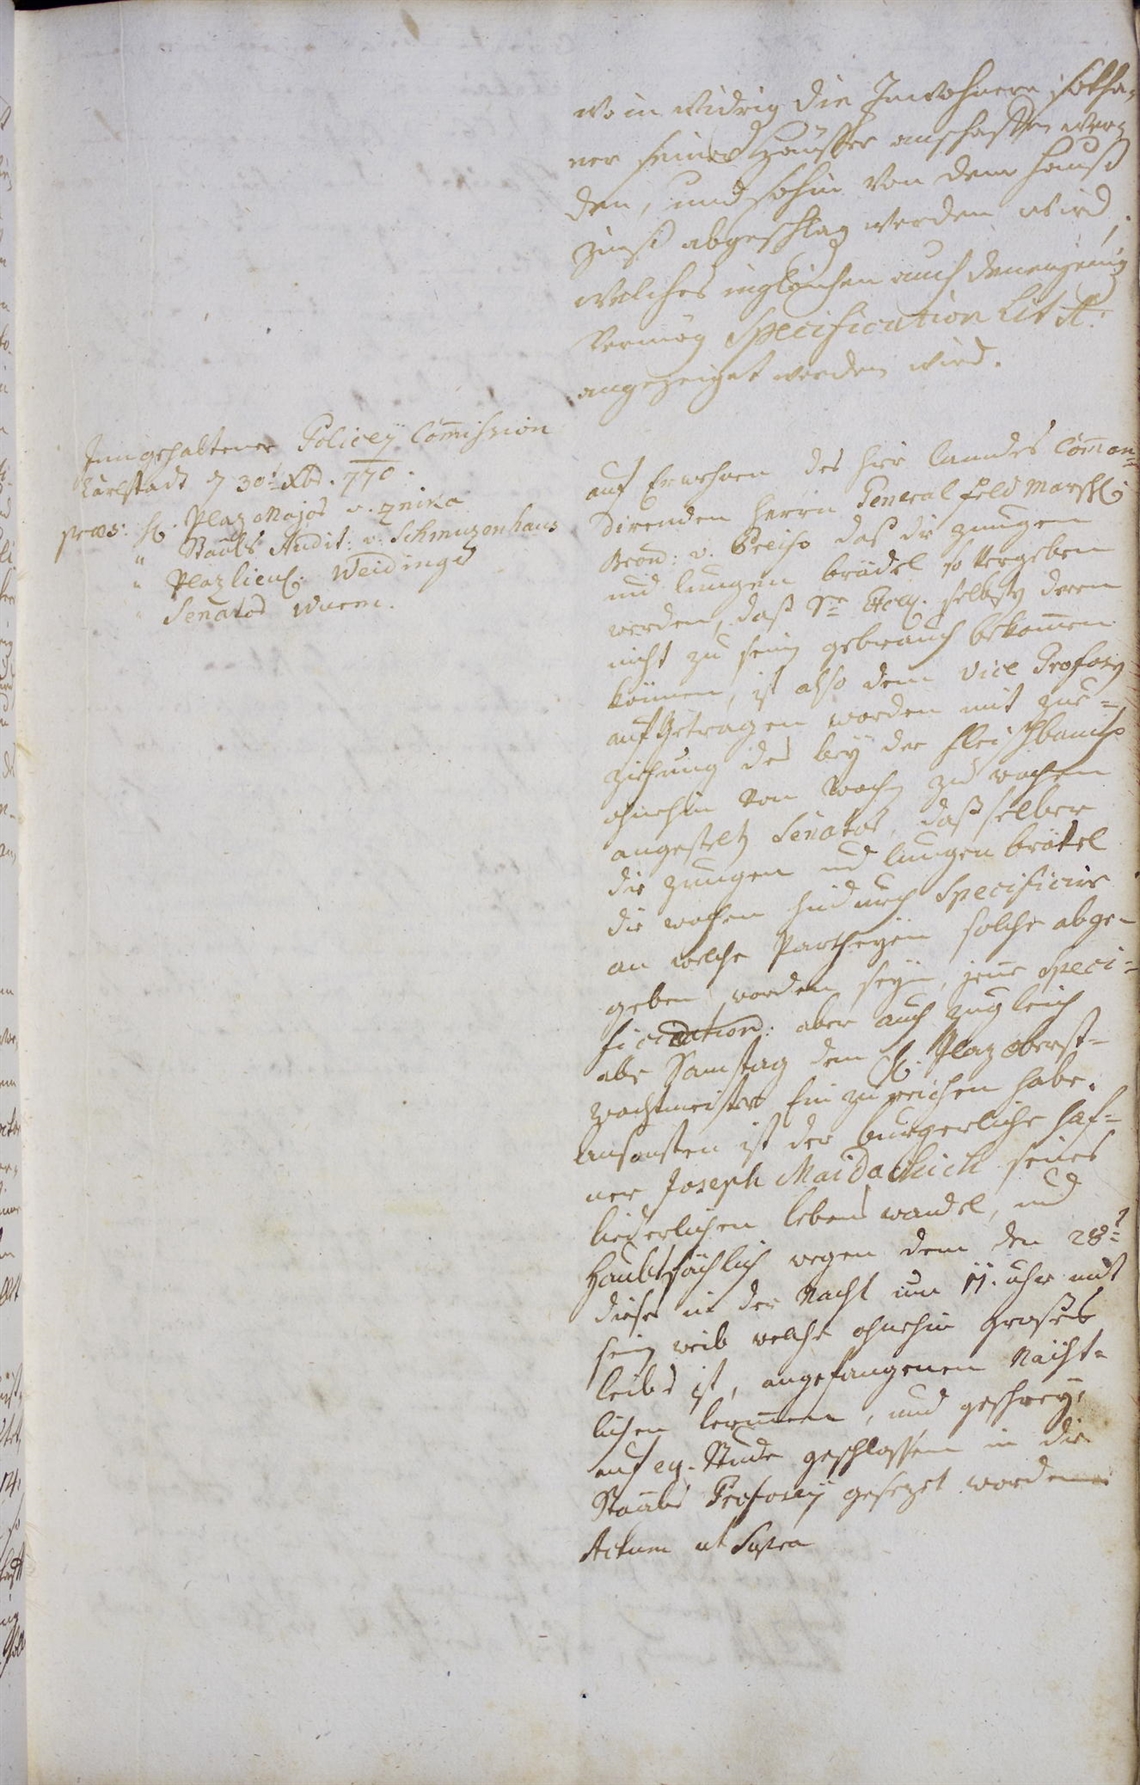 wo in widrig die Inwohnere sotha-
ner seiner Häusser anschaffen wer-
den, und sohin von dem Hauß
zinß abgeschlag werden wird,
welches ingleichen auch denenjenig
vermög Specification Lit A:
angezeiget werden wird.
Inngehaltener Policeÿ Commission
Carlstadt d 30t Xbr. 770.
praes: H. Plaz Major v. Znika
" Staabs Audit: v. Schmuzenhaus
" Plazlieut. Weidinger
" Senator Wurm.
auf Erwehnen des hier Landes Comman-
direnden Herrn General Feld Marschl
Leod: v. Preiss daß die zungen
und lungen brädel so vergeben
werden, daß Sr Excell. selbsten deren
nicht zu seinen gebrauch bekommen
können, ist also dem Vice Profosen
aufgetragen worden mit zu-
ziehung des beÿ der Fleischbank
ohnehin von Woche zu wochen
angestelten Senator, daß selber
die zungen und lungen brätel
die wochen hindurch Specificire
an welche Partheÿen solche abge-
geben worden seÿn, jene Speci-
fication: aber auch zugleich
alle Samstag dem H. Plaz Oberst-
wachtmeister Einzureichen habe.
Ansonsten ist der burgerliche Haf-
ner Joseph Maidachich seines
liederlichen lebens wandel, und
Haubtsächlich wegen dem den 28t
dieses in der Nacht um 11. uhr mit
sein weib welche ohnehin großes
leibs ist, angefangenen Nächt-
lichen lermen, und geschreÿ,
auf 24. Stunde geschlossen in die
Staabs Profosseÿ gesezet worden.
Actum ut Supra